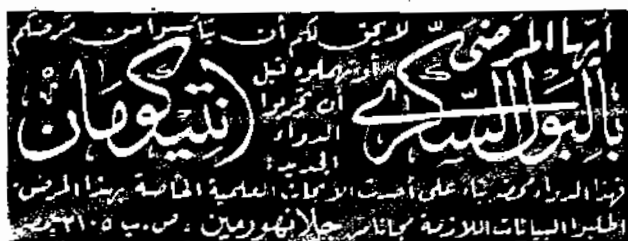 أيها المرضى
بالبول السكرى
لا يحق لكم أن تيأسوا من مرضكم
أو تهملوه قبل
أن تجربوا
الدواء
الجديد:
انتيكومان
فهذا الدواء محضر بناء على أحدث الأبحاث العلمية الخاصة بهذا المرض
اطلبوا البيانات اللازمة مجانا من جلانهورمين، ص.ب ٢١٠٥ مصر